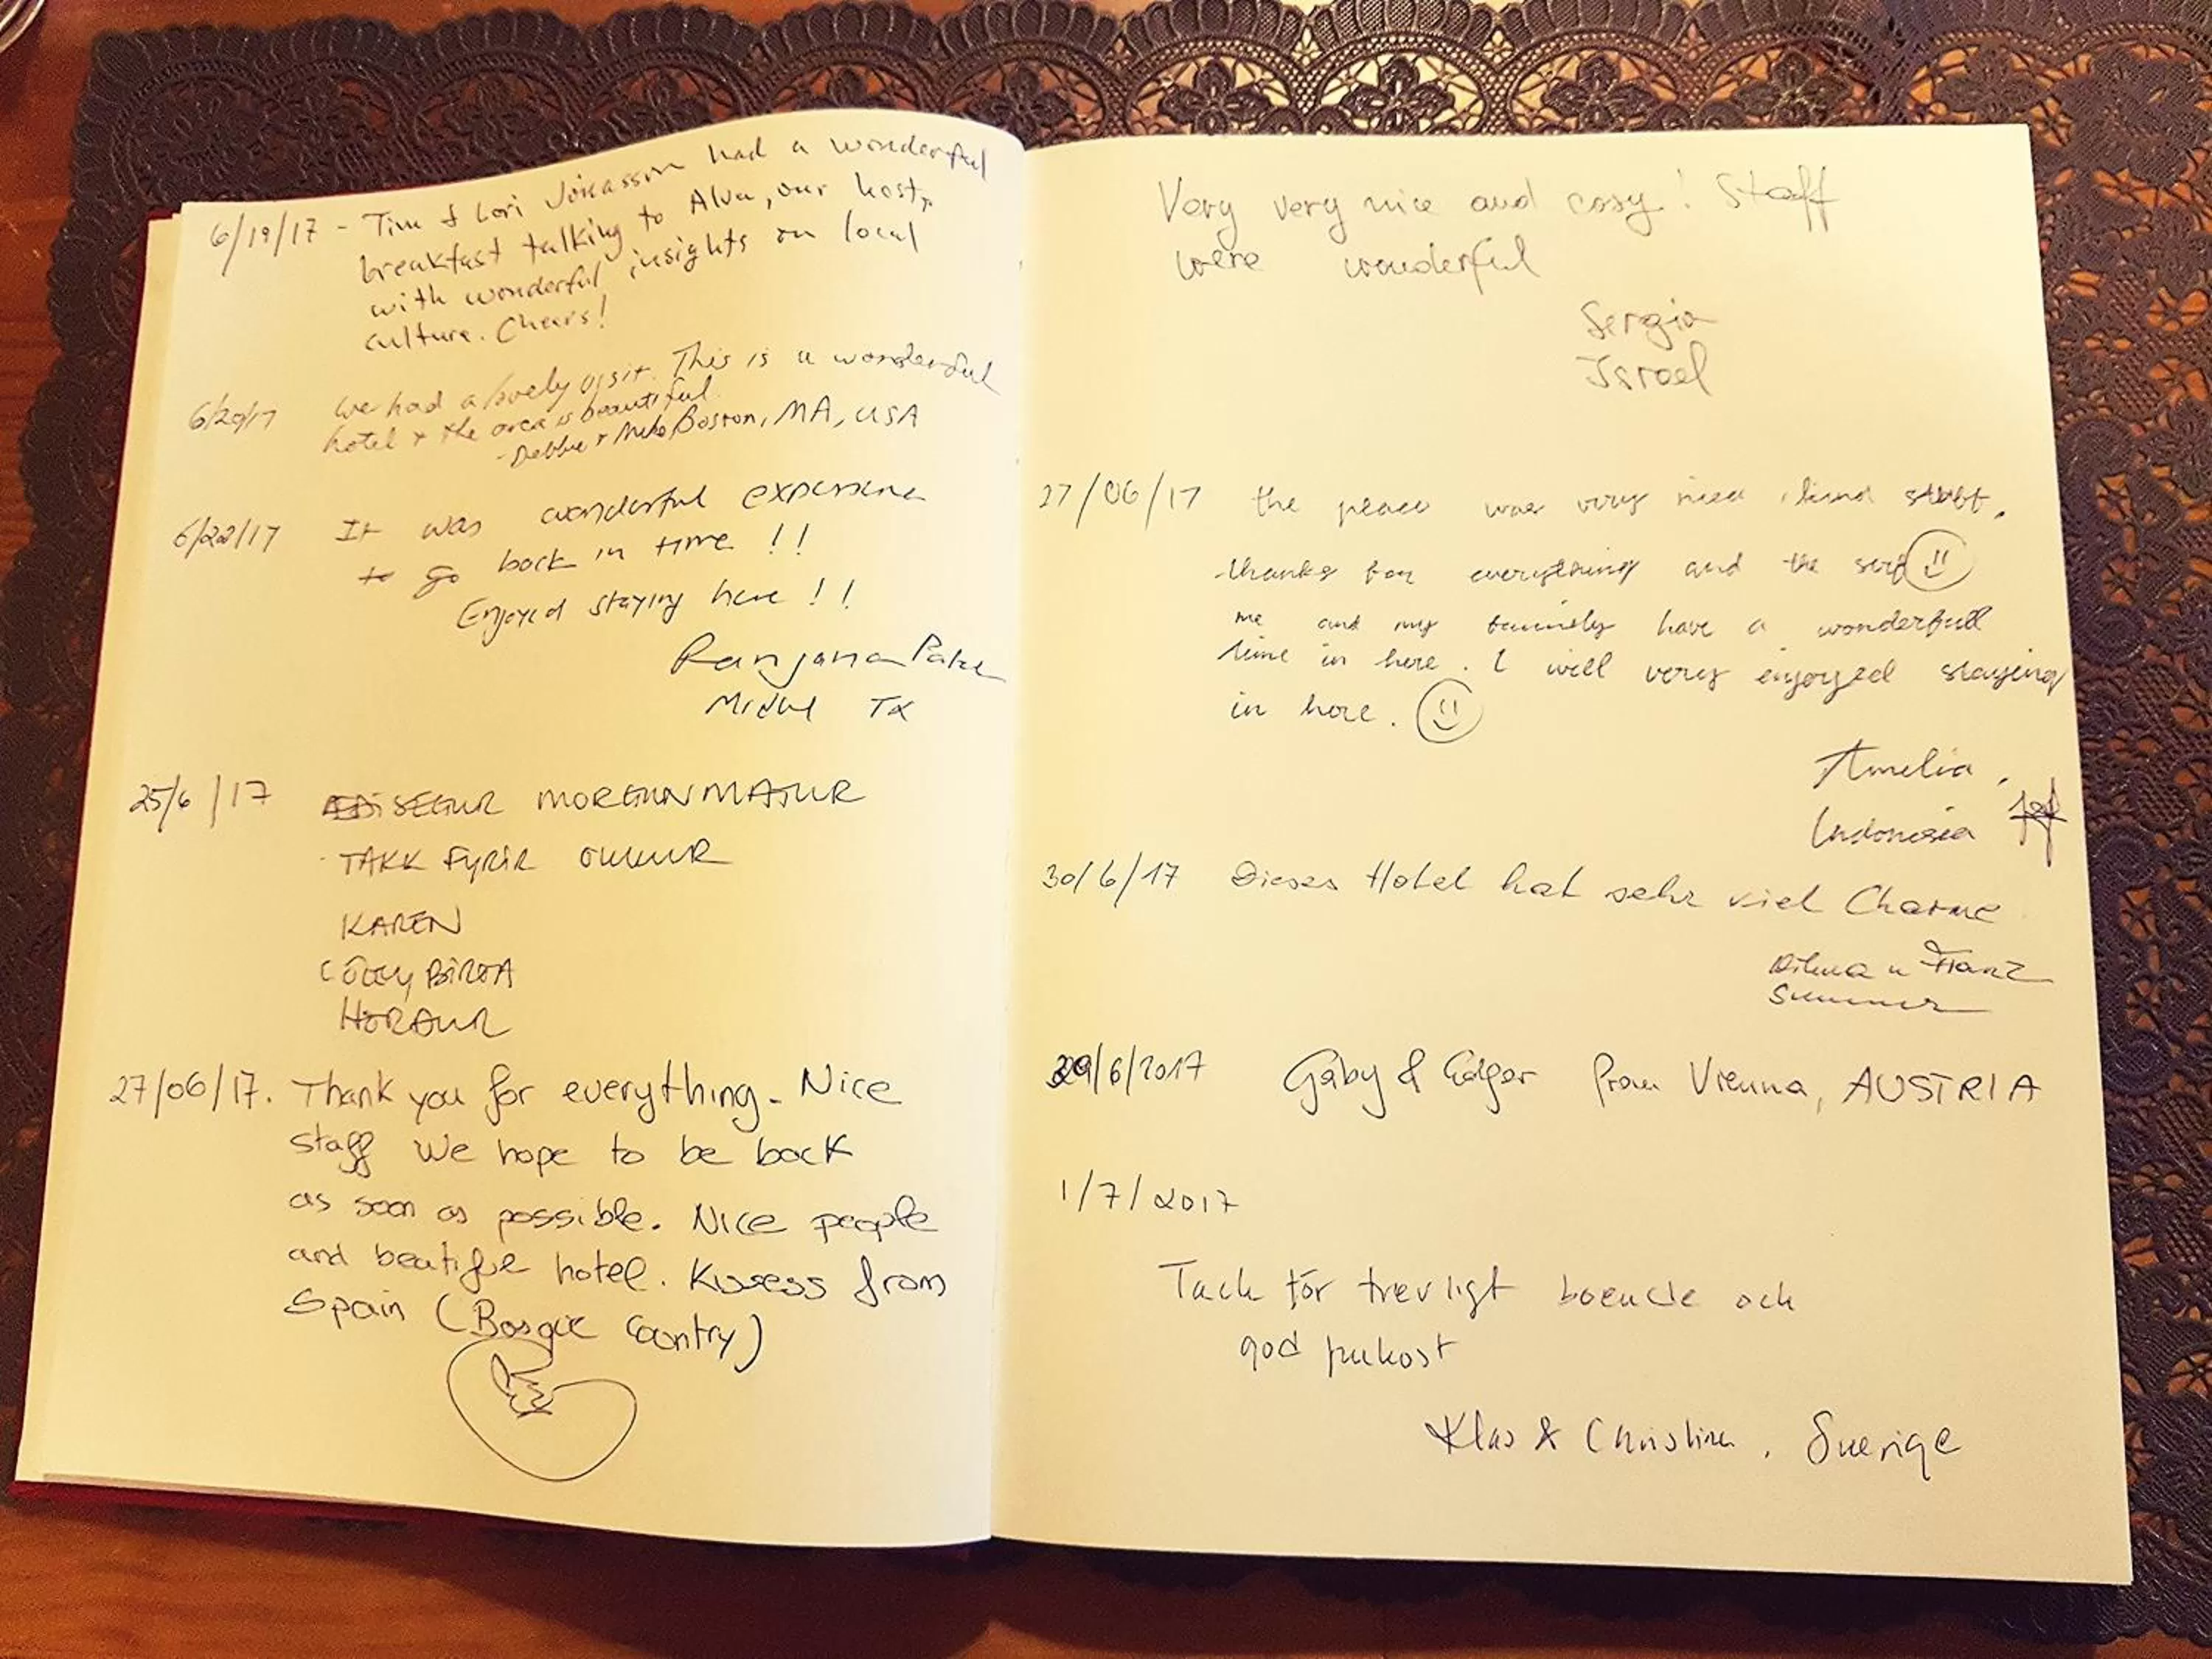 6/19/17 - Tim & Lori Jónasson had a wonderful
breakfast talking to Alva, our host,
with wonderful insights on local
culture. Cheers!
6/20/17 We had a lovely visit. This is a wonderful
hotel + the area is beautiful.
- Debbie + Mike Boston, MA, USA
6/22/17 It was wonderful experience
to go back in time !!
Enjoyed staying here !!
Ranjana
TX
25/6/17 MORGUNMATUR
TAKK FYRIR OKKUR
KAREN
BIRTA
HÖRÐUR
27/06/17. Thank you for everything. Nice
staff We hope to be back
as soon as possible. Nice people
and beatiful hotel. Kisess from
Spain (Basque Country)
Very very nice and cosy! Staff
were wonderful
Sergia
Israel
27/06/17 the place was very nice, kind staff.
thanks for everything and the
me and my familly have a wonderfull
time in here. I will very enjoyed staying
in here.
Amelia,
Indonesia
30/6/17 Dieses Hotel hat sehr viel Charme
u Franz
29/6/2017 Gaby & Edgar from Vienna, AUSTRIA
1/7/2017
Tack för trevligt boende och
god frukost
Klas & Christina, Sverige